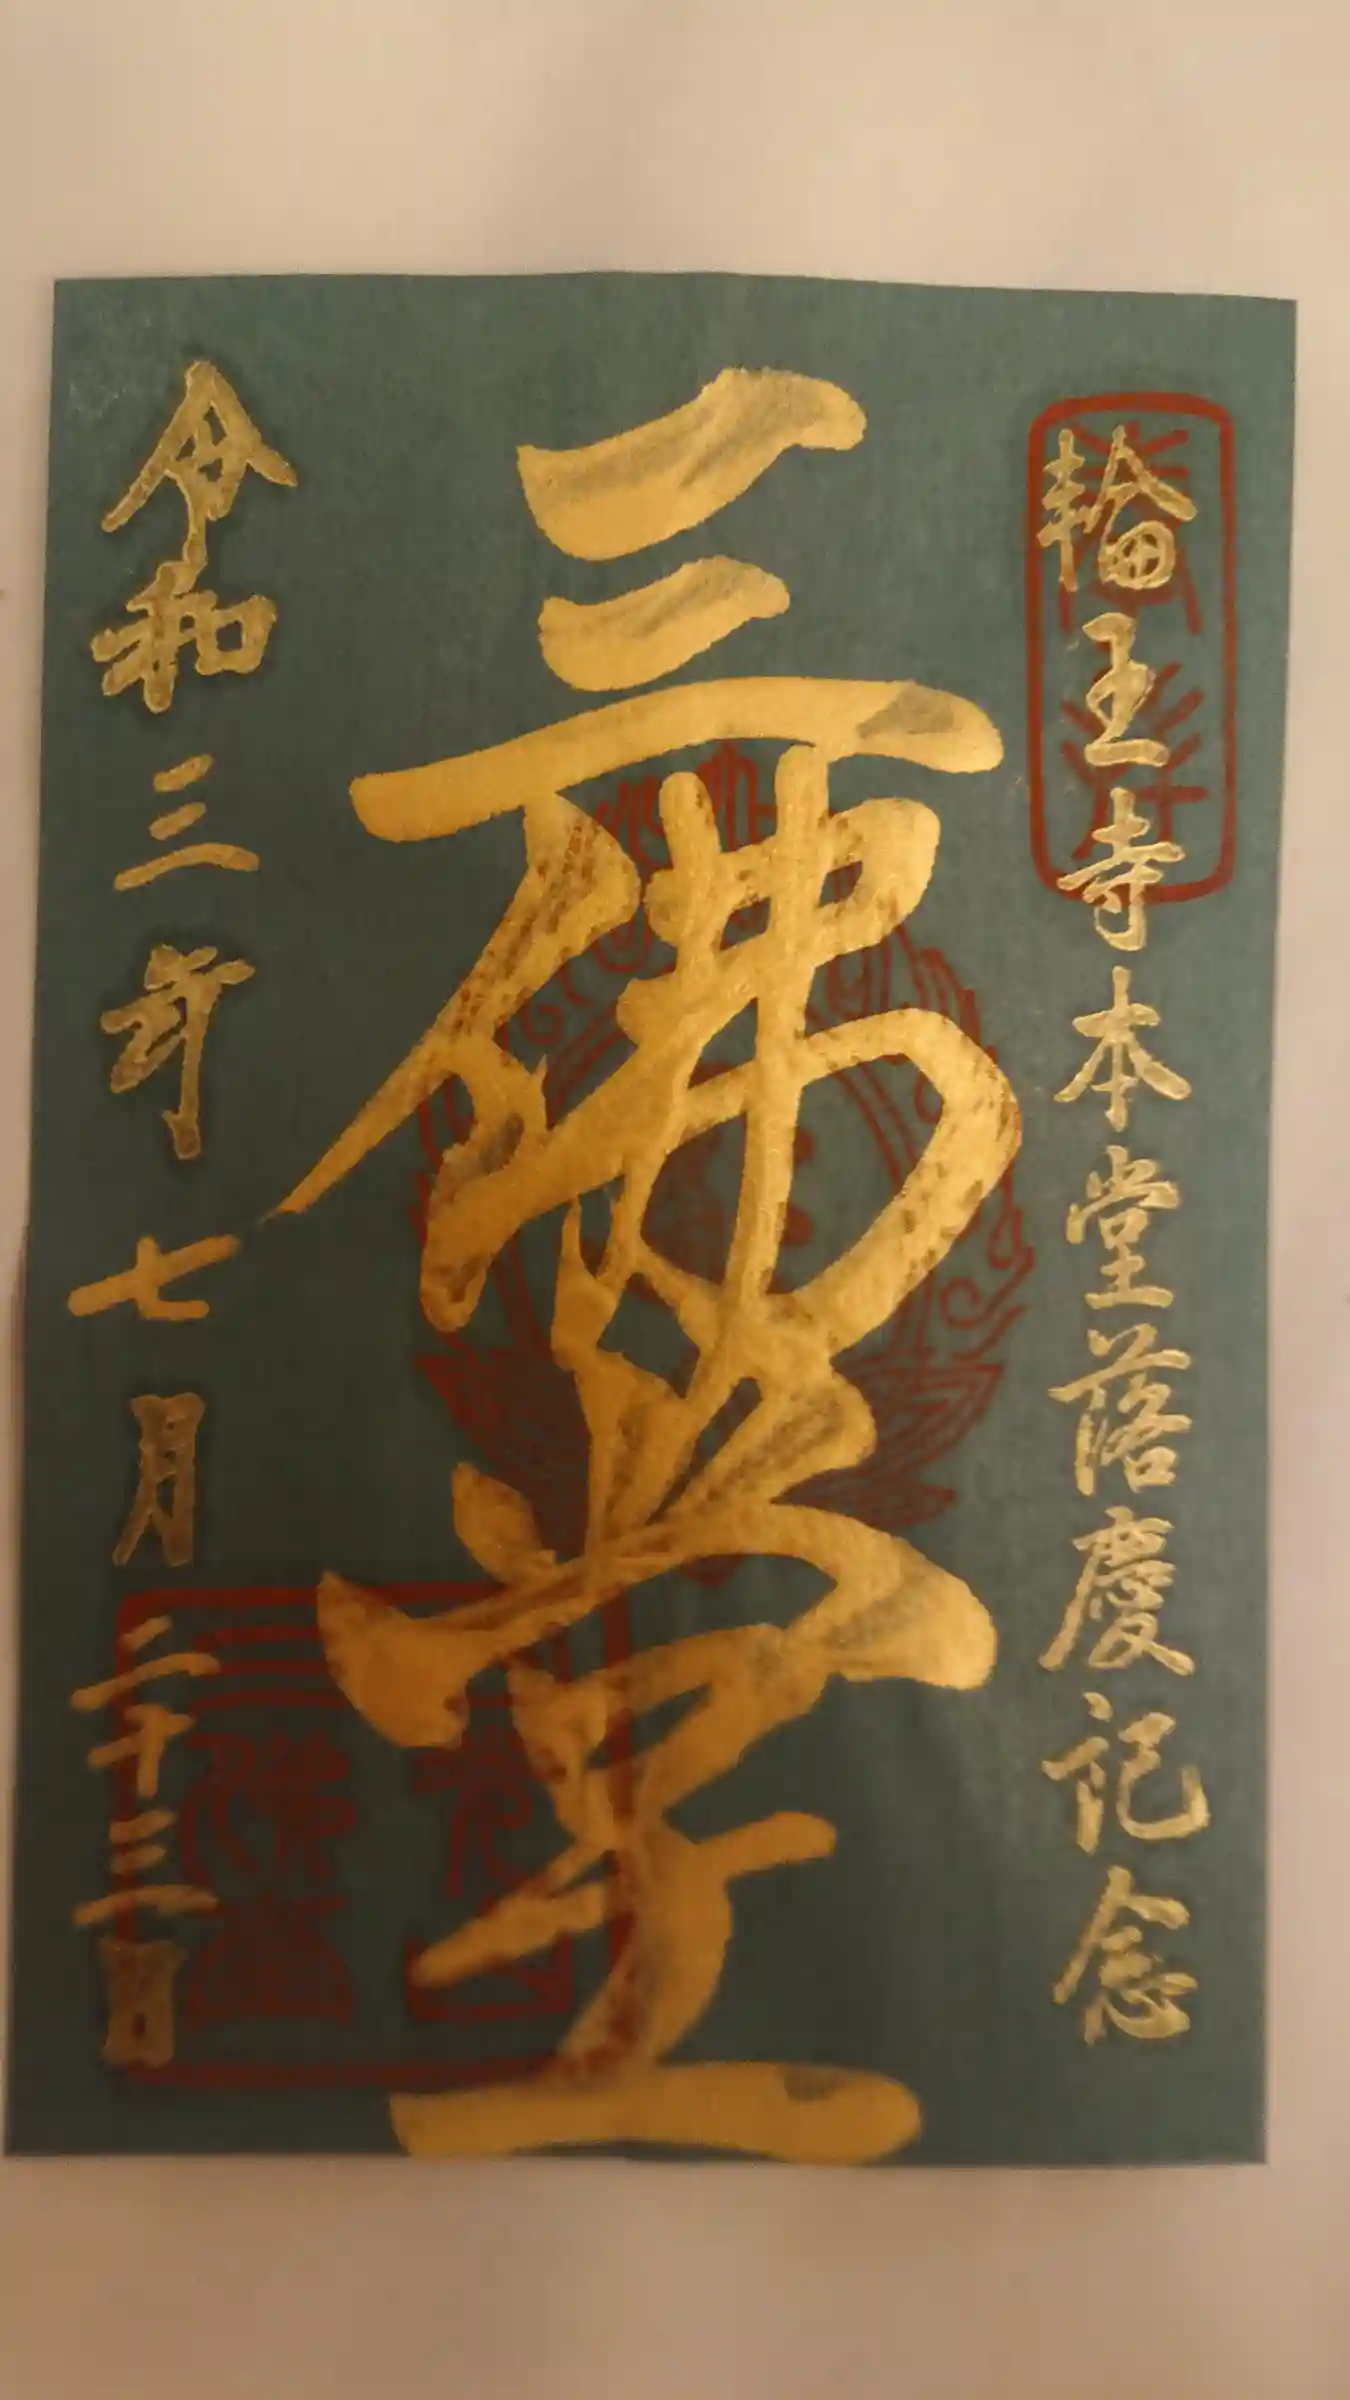 輪王寺本堂落慶記念
三佛堂
令和三年七月二十三日